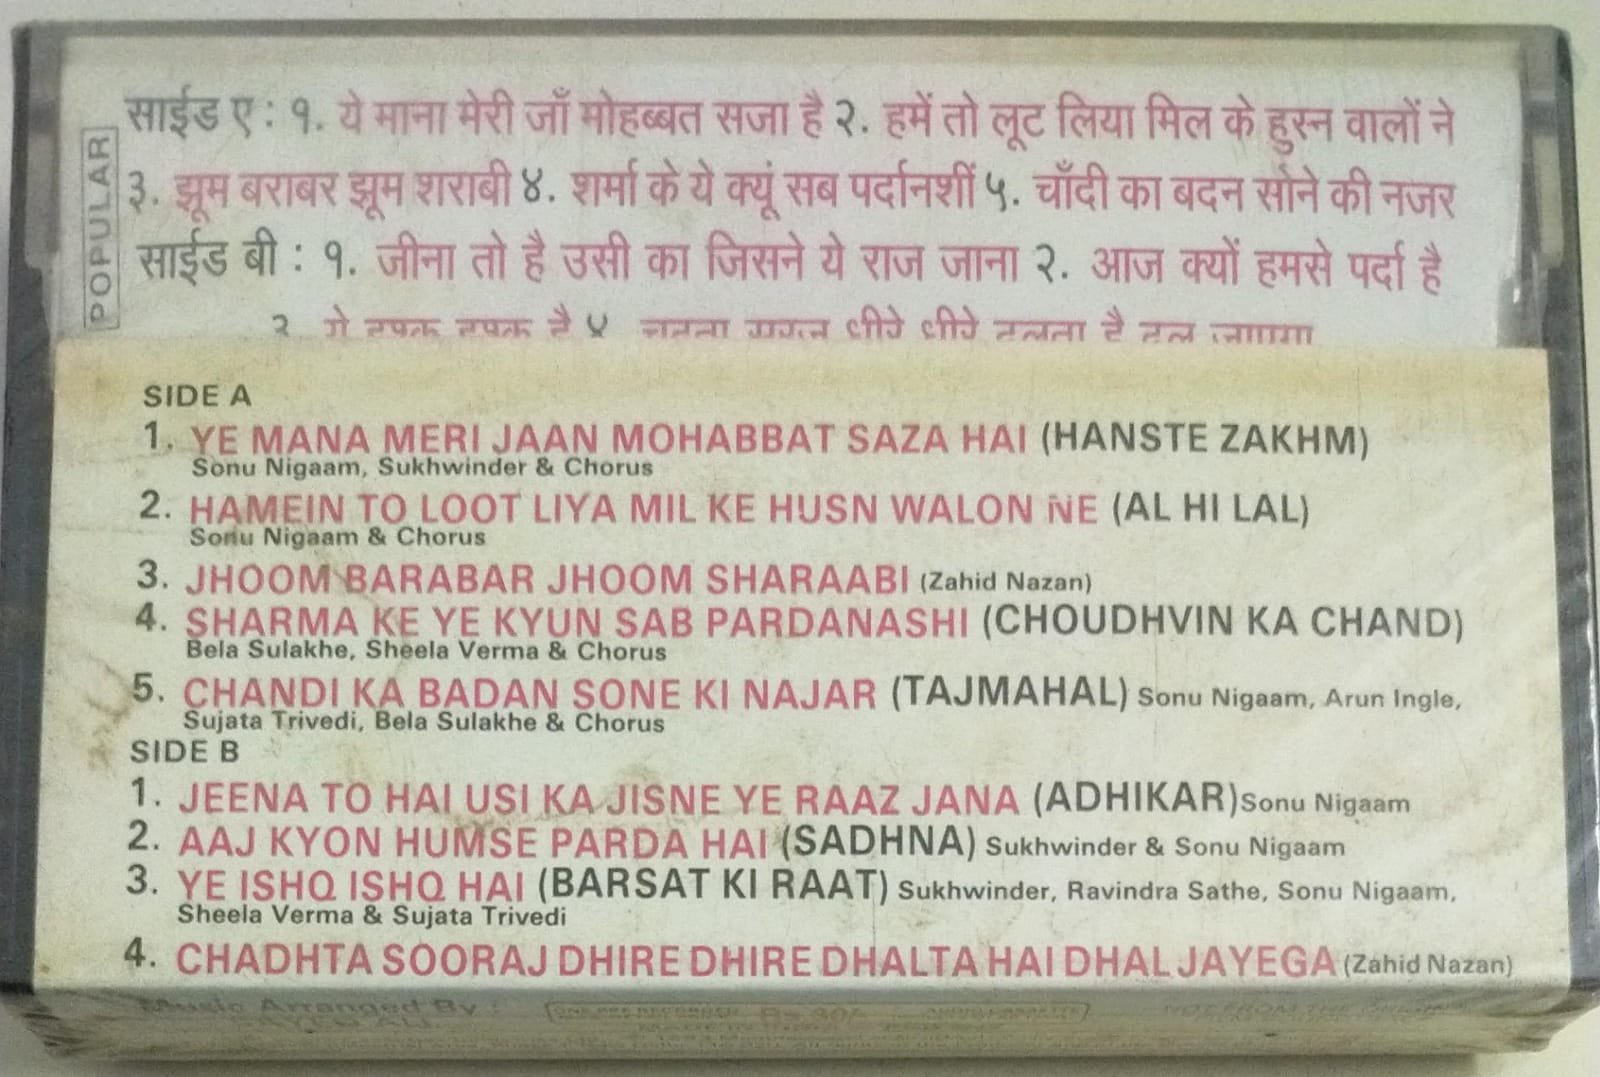 POPULAR
साईड ए : १. ये माना मेरी जाँ मोहब्बत सजा है २. हमें तो लूट लिया मिल के हुस्न वालों ने
३. झूम बराबर झूम शराबी ४. शर्मा के ये क्यूं सब पर्दानशीं ५. चाँदी का बदन सोने की नजर
साईड बी : १. जीना तो है उसी का जिसने ये राज जाना २. आज क्यों हमसे पर्दा है
SIDE A
1. YE MANA MERI JAAN MOHABBAT SAZA HAI (HANSTE ZAKHM)
Sonu Nigaam, Sukhwinder & Chorus
2. HAMEIN TO LOOT LIYA MIL KE HUSN WALON NE (AL HI LAL)
Sonu Nigaam & Chorus
3. JHOOM BARABAR JHOOM SHARAABI (Zahid Nazan)
4. SHARMA KE YE KYUN SAB PARDANASHI (CHOUDHVIN KA CHAND)
Bela Sulakhe, Sheela Verma & Chorus
5. CHANDI KA BADAN SONE KI NAJAR (TAJMAHAL) Sonu Nigaam, Arun Ingle,
Sujata Trivedi, Bela Sulakhe & Chorus
SIDE B
1. JEENA TO HAI USI KA JISNE YE RAAZ JANA (ADHIKAR) Sonu Nigaam
2. AAJ KYON HUMSE PARDA HAI (SADHNA) Sukhwinder & Sonu Nigaam
3. YE ISHQ ISHQ HAI (BARSAT KI RAAT) Sukhwinder, Ravindra Sathe, Sonu Nigaam,
Sheela Verma & Sujata Trivedi
4. CHADHTA SOORAJ DHIRE DHIRE DHALTA HAI DHAL JAYEGA (Zahid Nazan)
Music Arranged By :